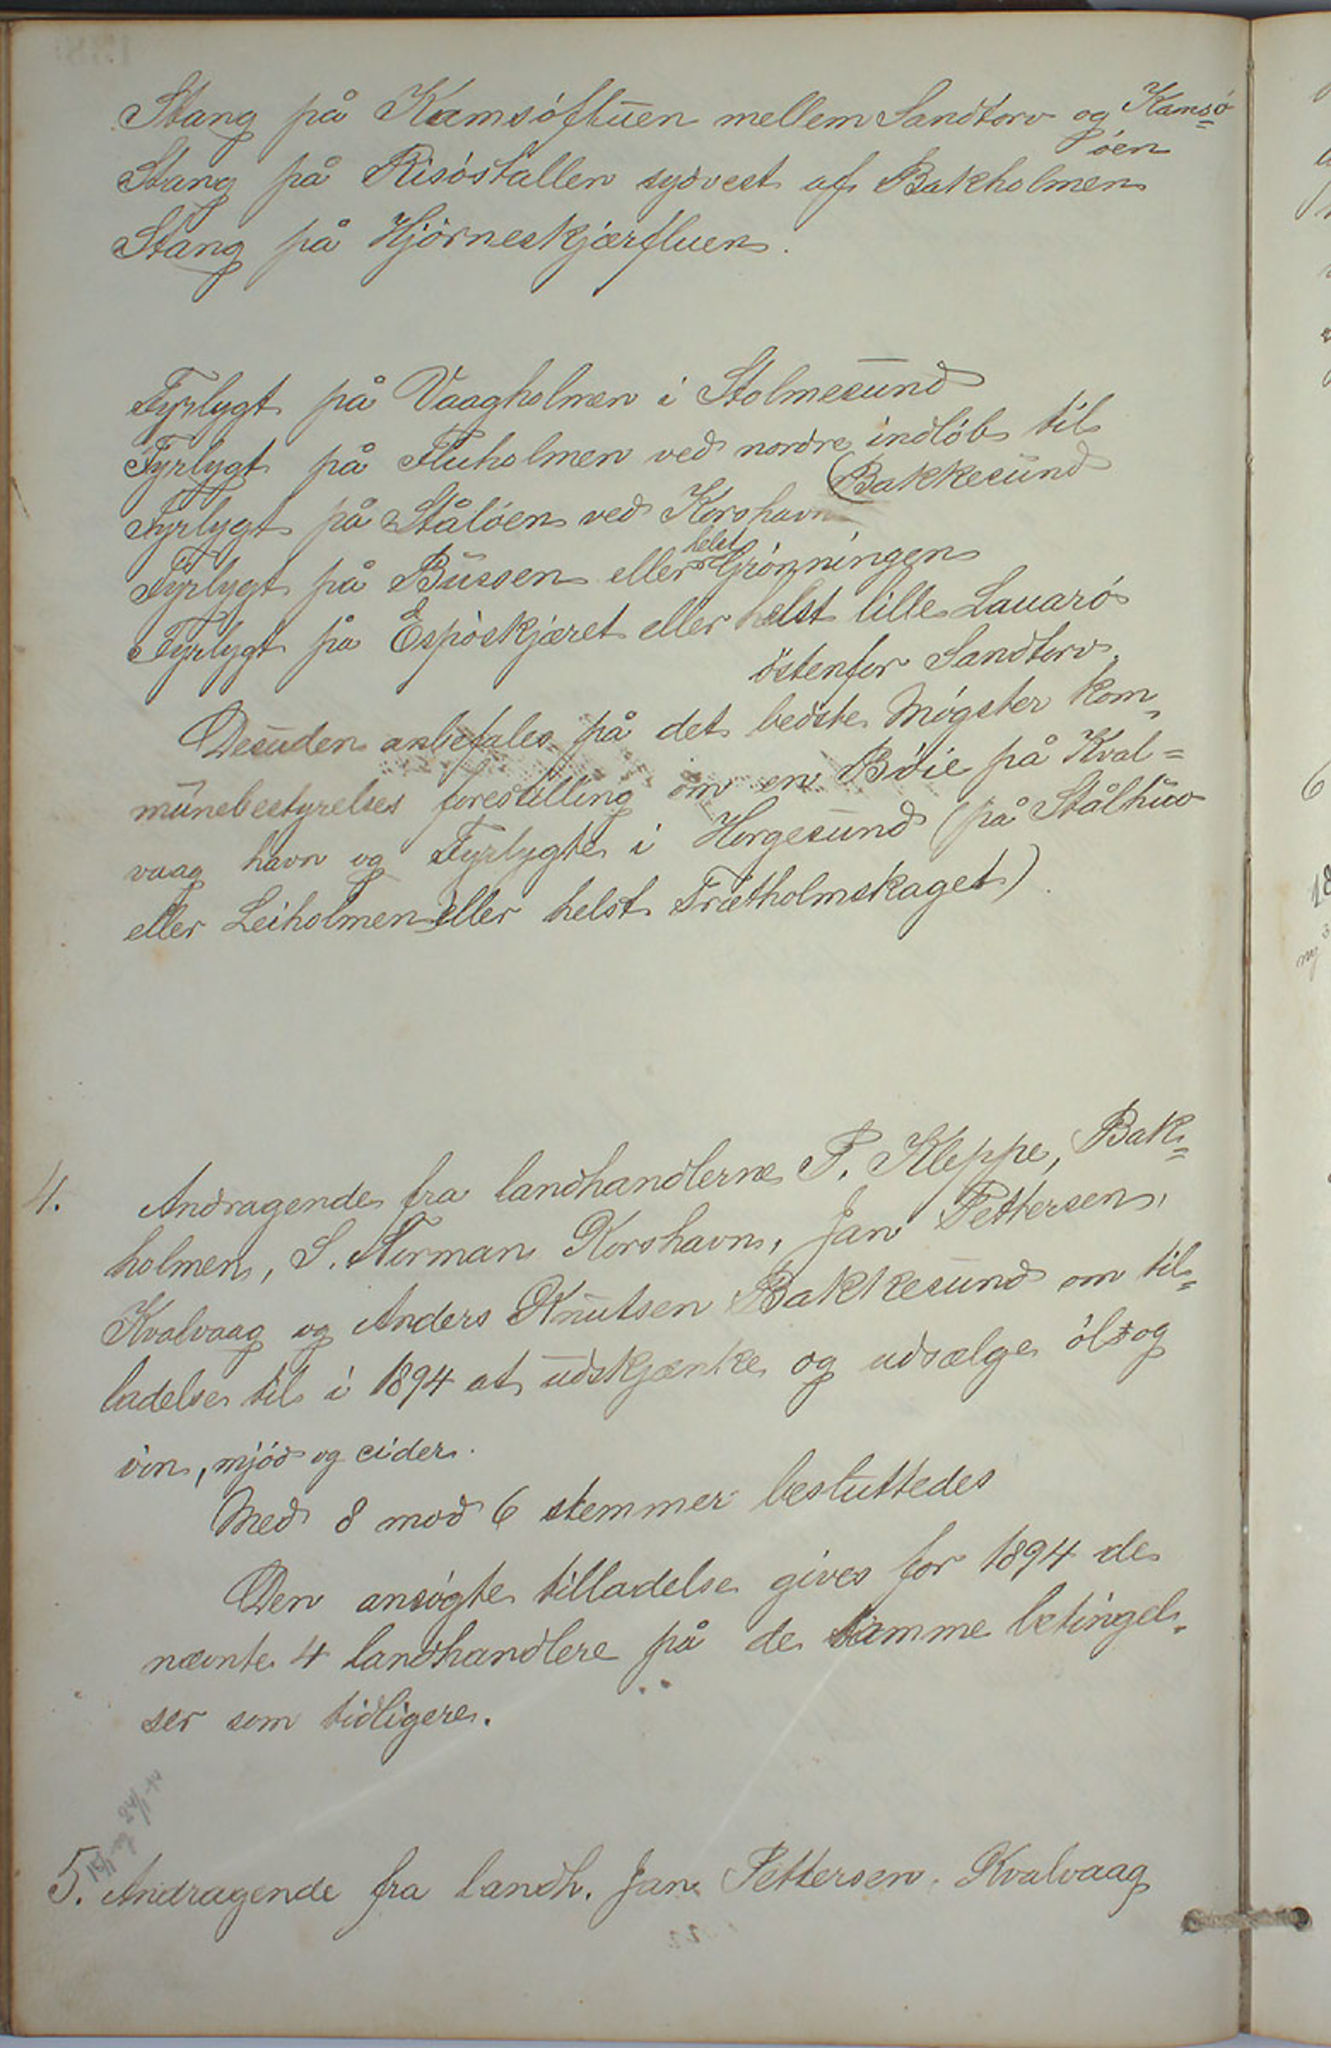 Stang på Kamsöfluen mellem Sandtorv og Kamsö=
öen
Stang på Risöstallen sydvest af Bakholmen
Stang på Hjörneskjærfluen.
Fyrlygt på Vaagholmen i Stolmesund
Fyrlygt på Fluholmen ved nordre indlöb til
(Bakkesund
Fyrlygt på Stålöen ved Korshavn
Fyrlygt på Bussen eller helst Grönningen
Fyrlygt på Espöskjæret eller helst lille Lauarö
östenfor Sandtorv.
Desuden anbefales på det bedste Mögster kom-
munebestyrelses forestilling om en Böie på Kval=
vaag havn og Fyrlygte i Horgesund (på Stålhuv
eller Leiholmen eller helst Trætholmskaget).
4. Andragende fra landhandlerne P. Kleppe, Bak=
holmen, S. Norman Korshavn, Jan Pettersen,
Kvalvaag og Anders Knutsen Bakkesund om til=
ladelse til i 1894 at udskjænke og udsælge öl og
vin, mjöd og cider.
Med 8 mod 6 stemmer besluttedes
Den ansögte tilladelse gives for 1894 de
nævnte 4 landhandlere på de samme betingel-
ser som tidligere.
5. Andragende fra landh. Jan Pettersen Kvalvaag